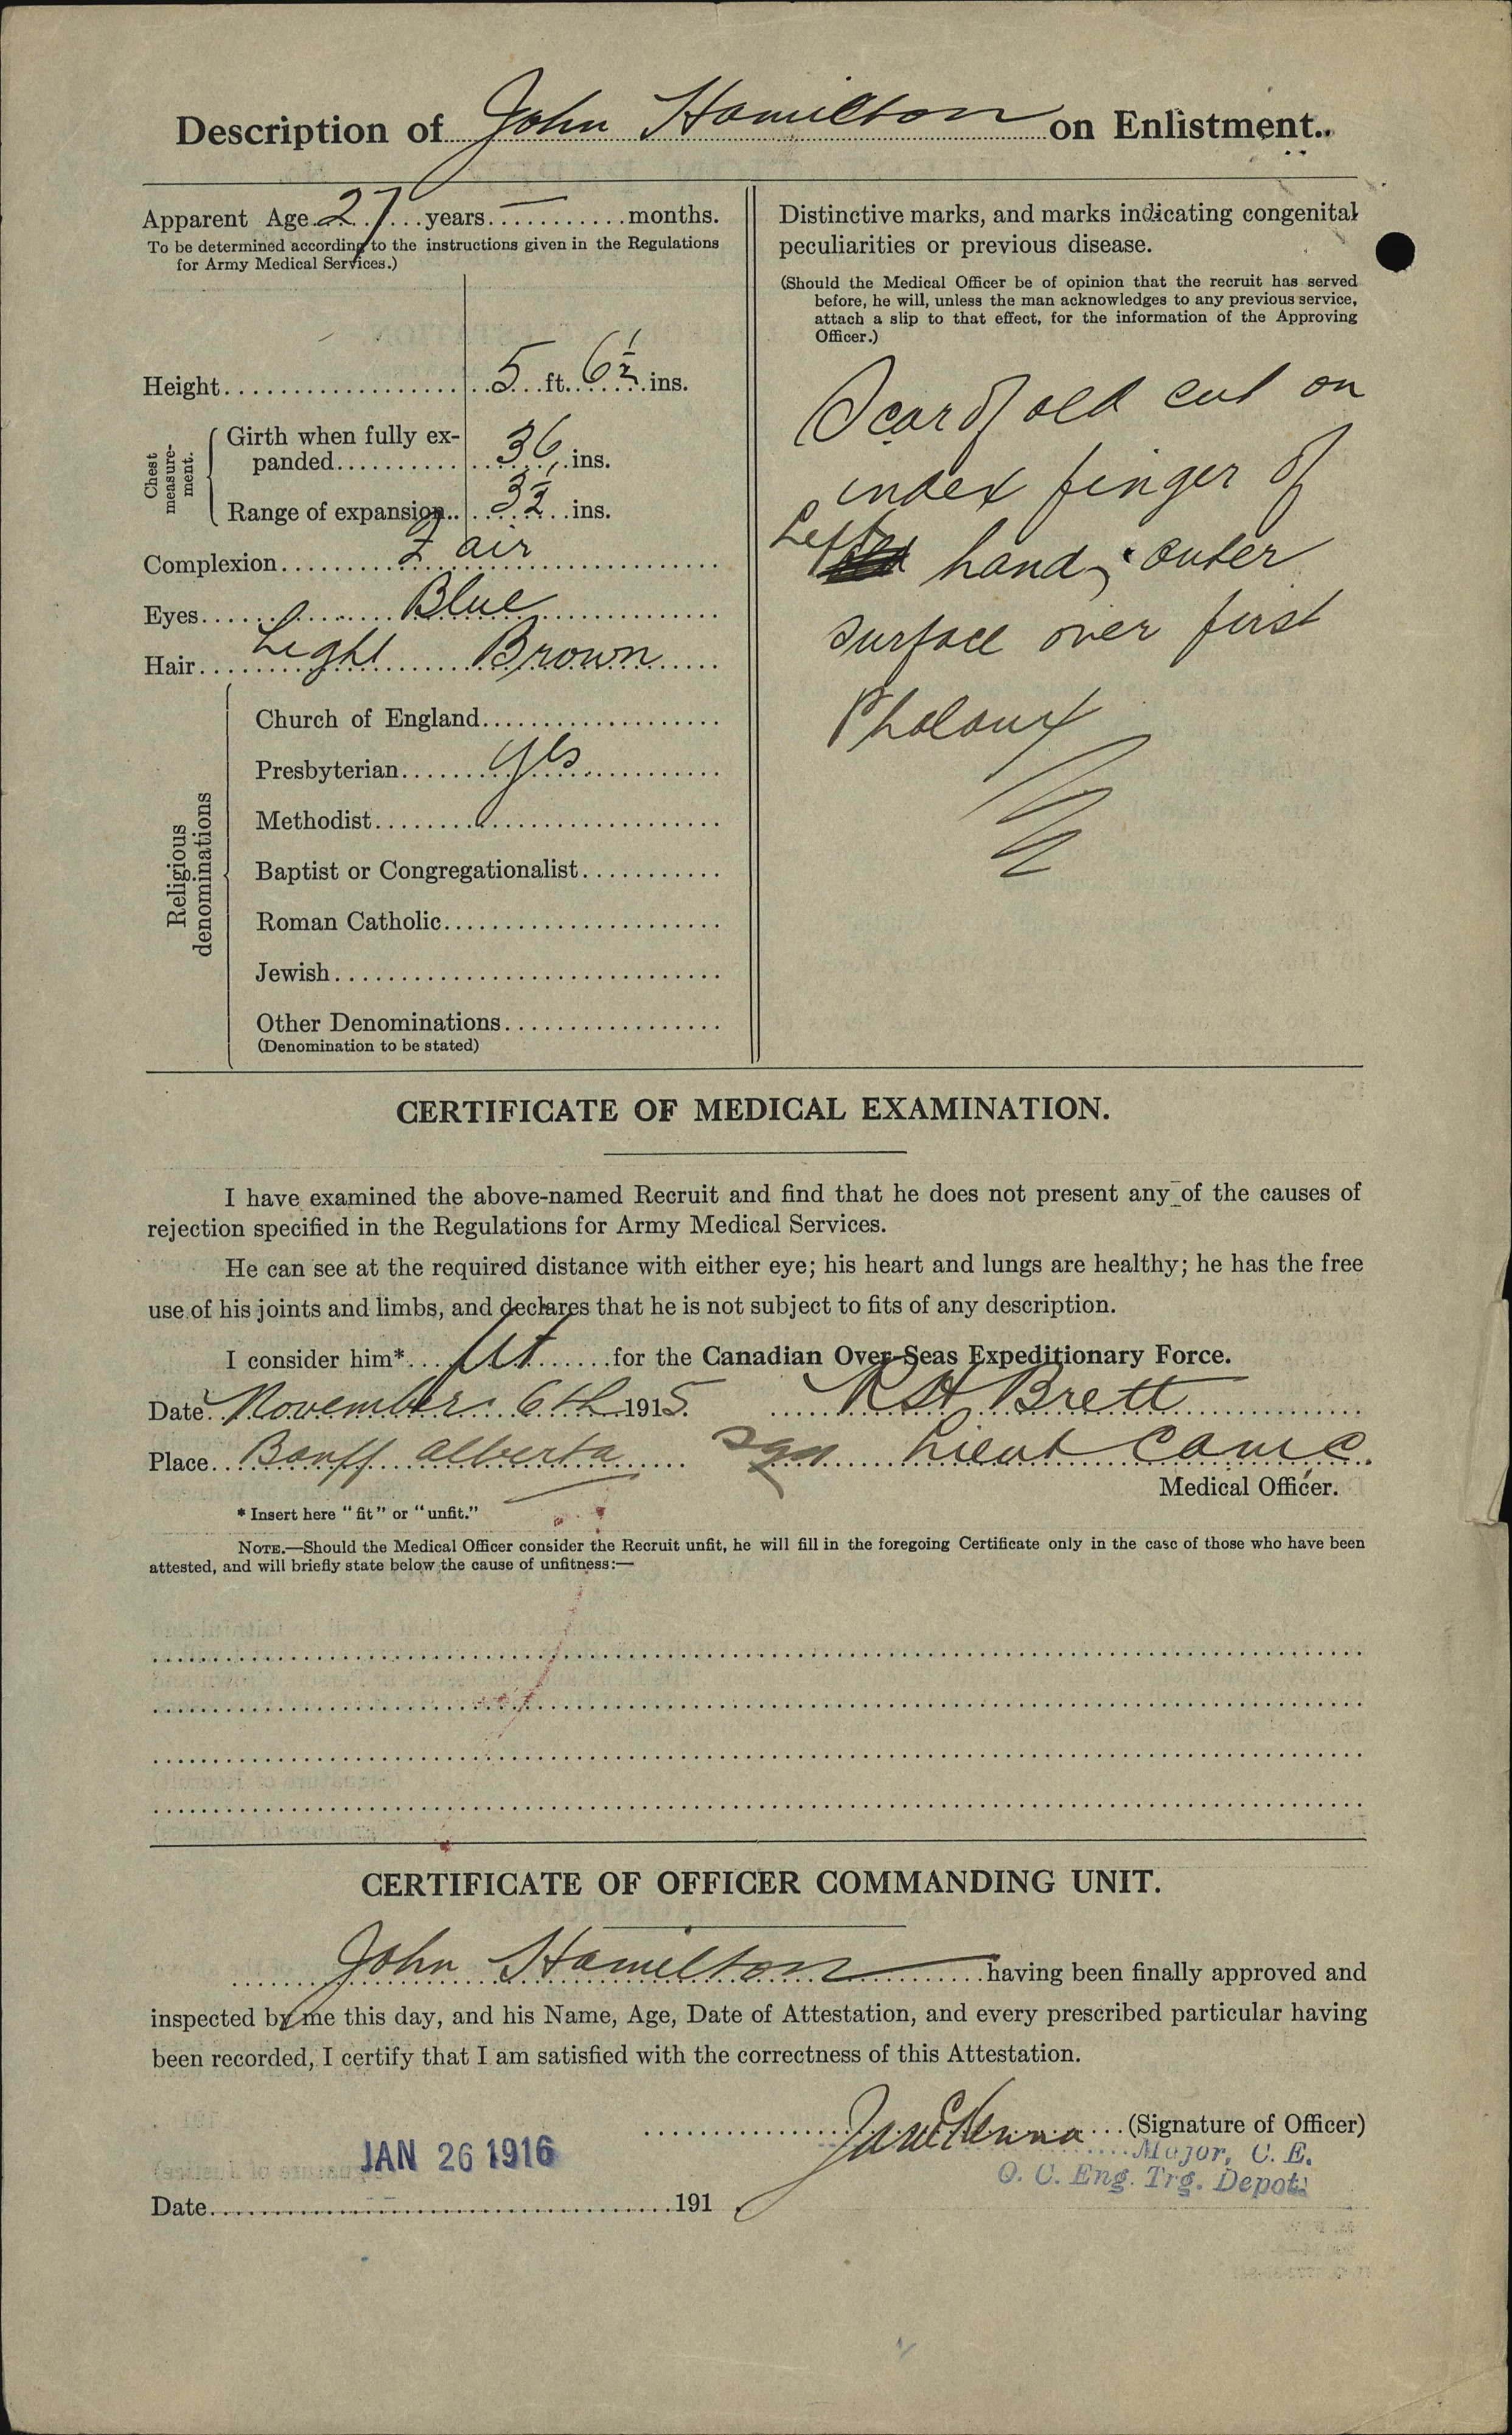 Description of John Hamilton on Enlistment.
Apparent Age 27 years — months.
To be determined according to the instructions given in the Regulations
for Army Medical Services.)
Height 5 ft. 6½ ins.
Chest measure-ment.
Girth when fully ex-
panded 36 ins.
Range of expansion 3½ ins.
Complexion Fair
Eyes Blue
Hair Light Brown
Religious denominations
Church of England
Presbyterian yes
Methodist
Baptist or Congregationalist
Roman Catholic
Jewish
Other Denominations
(Denomination to be stated)
Distinctive marks, and marks indicating congenital
peculiarities or previous disease.
(Should the Medical Officer be of opinion that the recruit has served
before, he will, unless the man acknowledges to any previous service,
attach a slip to that effect, for the information of the Approving
Officer.)
Scar of old cut on
index finger of
Left hand, outer
surface over first
Phalanx
CERTIFICATE OF MEDICAL EXAMINATION.
I have examined the above-named Recruit and find that he does not present any of the causes of
rejection specified in the Regulations for Army Medical Services.
He can see at the required distance with either eye; his heart and lungs are healthy; he has the free
use of his joints and limbs, and declares that he is not subject to fits of any description.
I consider him* fit for the Canadian Over-Seas Expeditionary Force.
Date November 6th 1915. R H Brett
Place Banff Alberta Sgn Lieut CAMC
Medical Officer.
* Insert here "fit" or "unfit."
NOTE.—Should the Medical Officer consider the Recruit unfit, he will fill in the foregoing Certificate only in the case of those who have been
attested, and will briefly state below the cause of unfitness:—
CERTIFICATE OF OFFICER COMMANDING UNIT.
John Hamilton having been finally approved and
inspected by me this day, and his Name, Age, Date of Attestation, and every prescribed particular having
been recorded, I certify that I am satisfied with the correctness of this Attestation.
(Signature of Officer)
Major, C. E.
O. C. Eng. Trg. Depot.
JAN 26 1916
Date 191